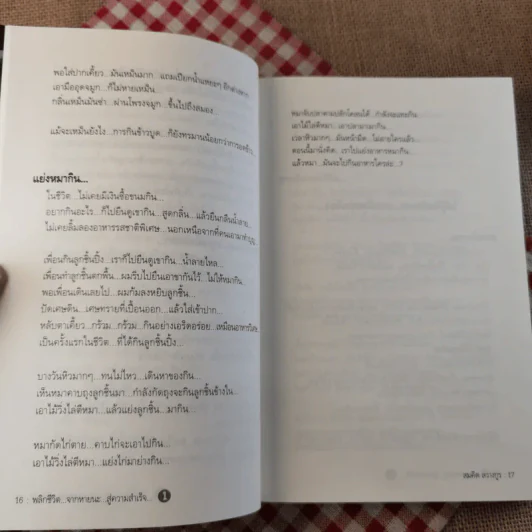 พอใส่ปากเคี้ยว...มันเหม็นมาก...แถมเปียกน้ำแหยะๆ อีกต่างหาก
เอามืออุดจมูก...ก็ไม่หายเหม็น...
กลิ่นเหม็นมันซ่า...ผ่านโพรงจมูก...ขึ้นไปถึงสมอง...
แม้จะเหม็นยังไง...การกินข้าวบูด...ก็ยังทรมานน้อยกว่าการอดข้าว...
แย่งหมากิน...
ในชีวิต...ไม่เคยมีเงินซื้อขนมกิน...
อยากกินอะไร...ก็ไปยืนดูเขากิน...สูดกลิ่น...แล้วยืนกลืนน้ำลาย...
ไม่เคยลิ้มลองอาหารรสชาติพิเศษ...นอกเหนือจากที่คนเอามาทำบุญ...
เพื่อนกินลูกชิ้นปิ้ง...เราก็ไปยืนดูเขากิน...น้ำลายไหล...
เพื่อนทำลูกชิ้นตกพื้น...ผมรีบไปยืนเอาขากันไว้...ไม่ให้หมากิน...
พอเพื่อนเดินเลยไป...ผมก้มลงหยิบลูกชิ้น...
ปัดเศษดิน...เศษทรายที่เปื้อนออก...แล้วใส่เข้าปาก...
หลับตาเคี้ยว...กร้วม...กร้วม...กินอย่างเอร็ดอร่อย...เหมือนอาหารวิเศษ...
เป็นครั้งแรกในชีวิต...ที่ได้กินลูกชิ้นปิ้ง...
บางวันหิวมากๆ...ทนไม่ไหว...เดินหาของกิน...
เห็นหมาคาบถุงลูกชิ้นมา...กำลังกัดถุงจะกินลูกชิ้นข้างใน...
เอาไม้วิ่งไล่ตีหมา...แล้วแย่งลูกชิ้น...มากิน...
หมากัดไก่ตาย...คาบไก่จะเอาไปกิน...
เอาไม้วิ่งไล่ตีหมา...แย่งไก่มาย่างกิน...
16 : พลิกชีวิต...จากหายนะ...สู่ความสำเร็จ... 1
หมาจับปลาตามปลักโคลนได้...กำลังจะแทะกิน...
เอาไม้ไล่ตีหมา...เอาปลามาเผากิน...
เวลาหิวมากๆ...มันหน้ามืด...ไม่อายใครแล้ว...
ตอนนี้มานั่งคิด...เราไปแย่งอาหารหมากิน...
แล้วหมา...มันจะไปกินอาหารใครล่ะ...?
สมคิด ลวางกูร : 17